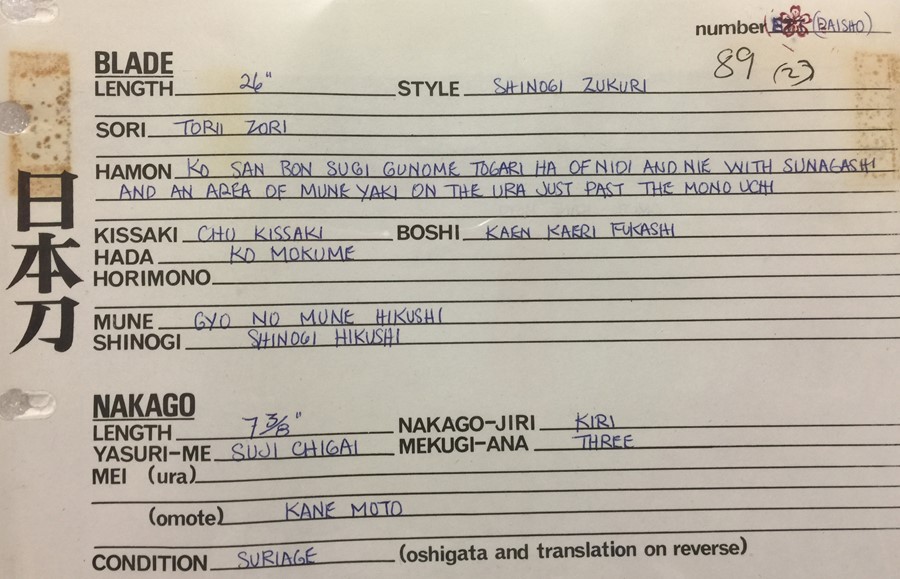 number (DAISHO)
89 (2)
BLADE
LENGTH 26" STYLE SHINOGI ZUKURI
SORI TORII ZORI
HAMON KO SAN BON SUGI GUNOME TOGARI HA OF NIOI AND NIE WITH SUNAGASHI
AND AN AREA OF MUNE YAKI ON THE URA JUST PAST THE MONO UCHI
KISSAKI CHU KISSAKI BOSHI KAEN KAERI FUKASHI
HADA KO MOKUME
HORIMONO
MUNE GYO NO MUNE HIKUSHI
SHINOGI SHINOGI HIKUSHI
日本刀
NAKAGO
LENGTH 7 3/8" NAKAGO-JIRI KIRI
YASURI-ME SUJI CHIGAI MEKUGI-ANA THREE
MEI (ura)
(omote) KANE MOTO
CONDITION SURIAGE (oshigata and translation on reverse)